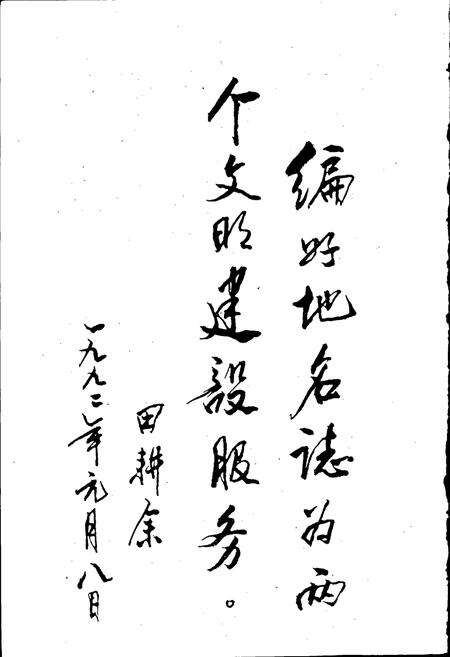 编好地名誌为两
个文明建設服务。
田耕余
一九九二年元月八日